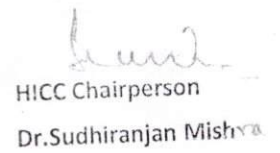 HICC Chairperson
Dr.Sudhiranjan Mishra